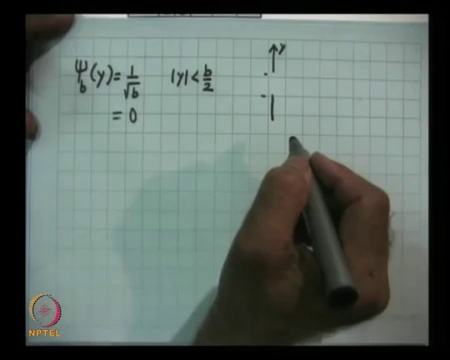 ψ_b(y) = 1/√b   |y| < b/2   y
= 0
NPTEL